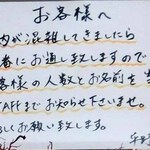 お客様へ
内が混雑してきましたら
番にお通し致しますので
客様の人数とお名前を
TAFFまでお知らせ下さいませ。
しくお願い致します。